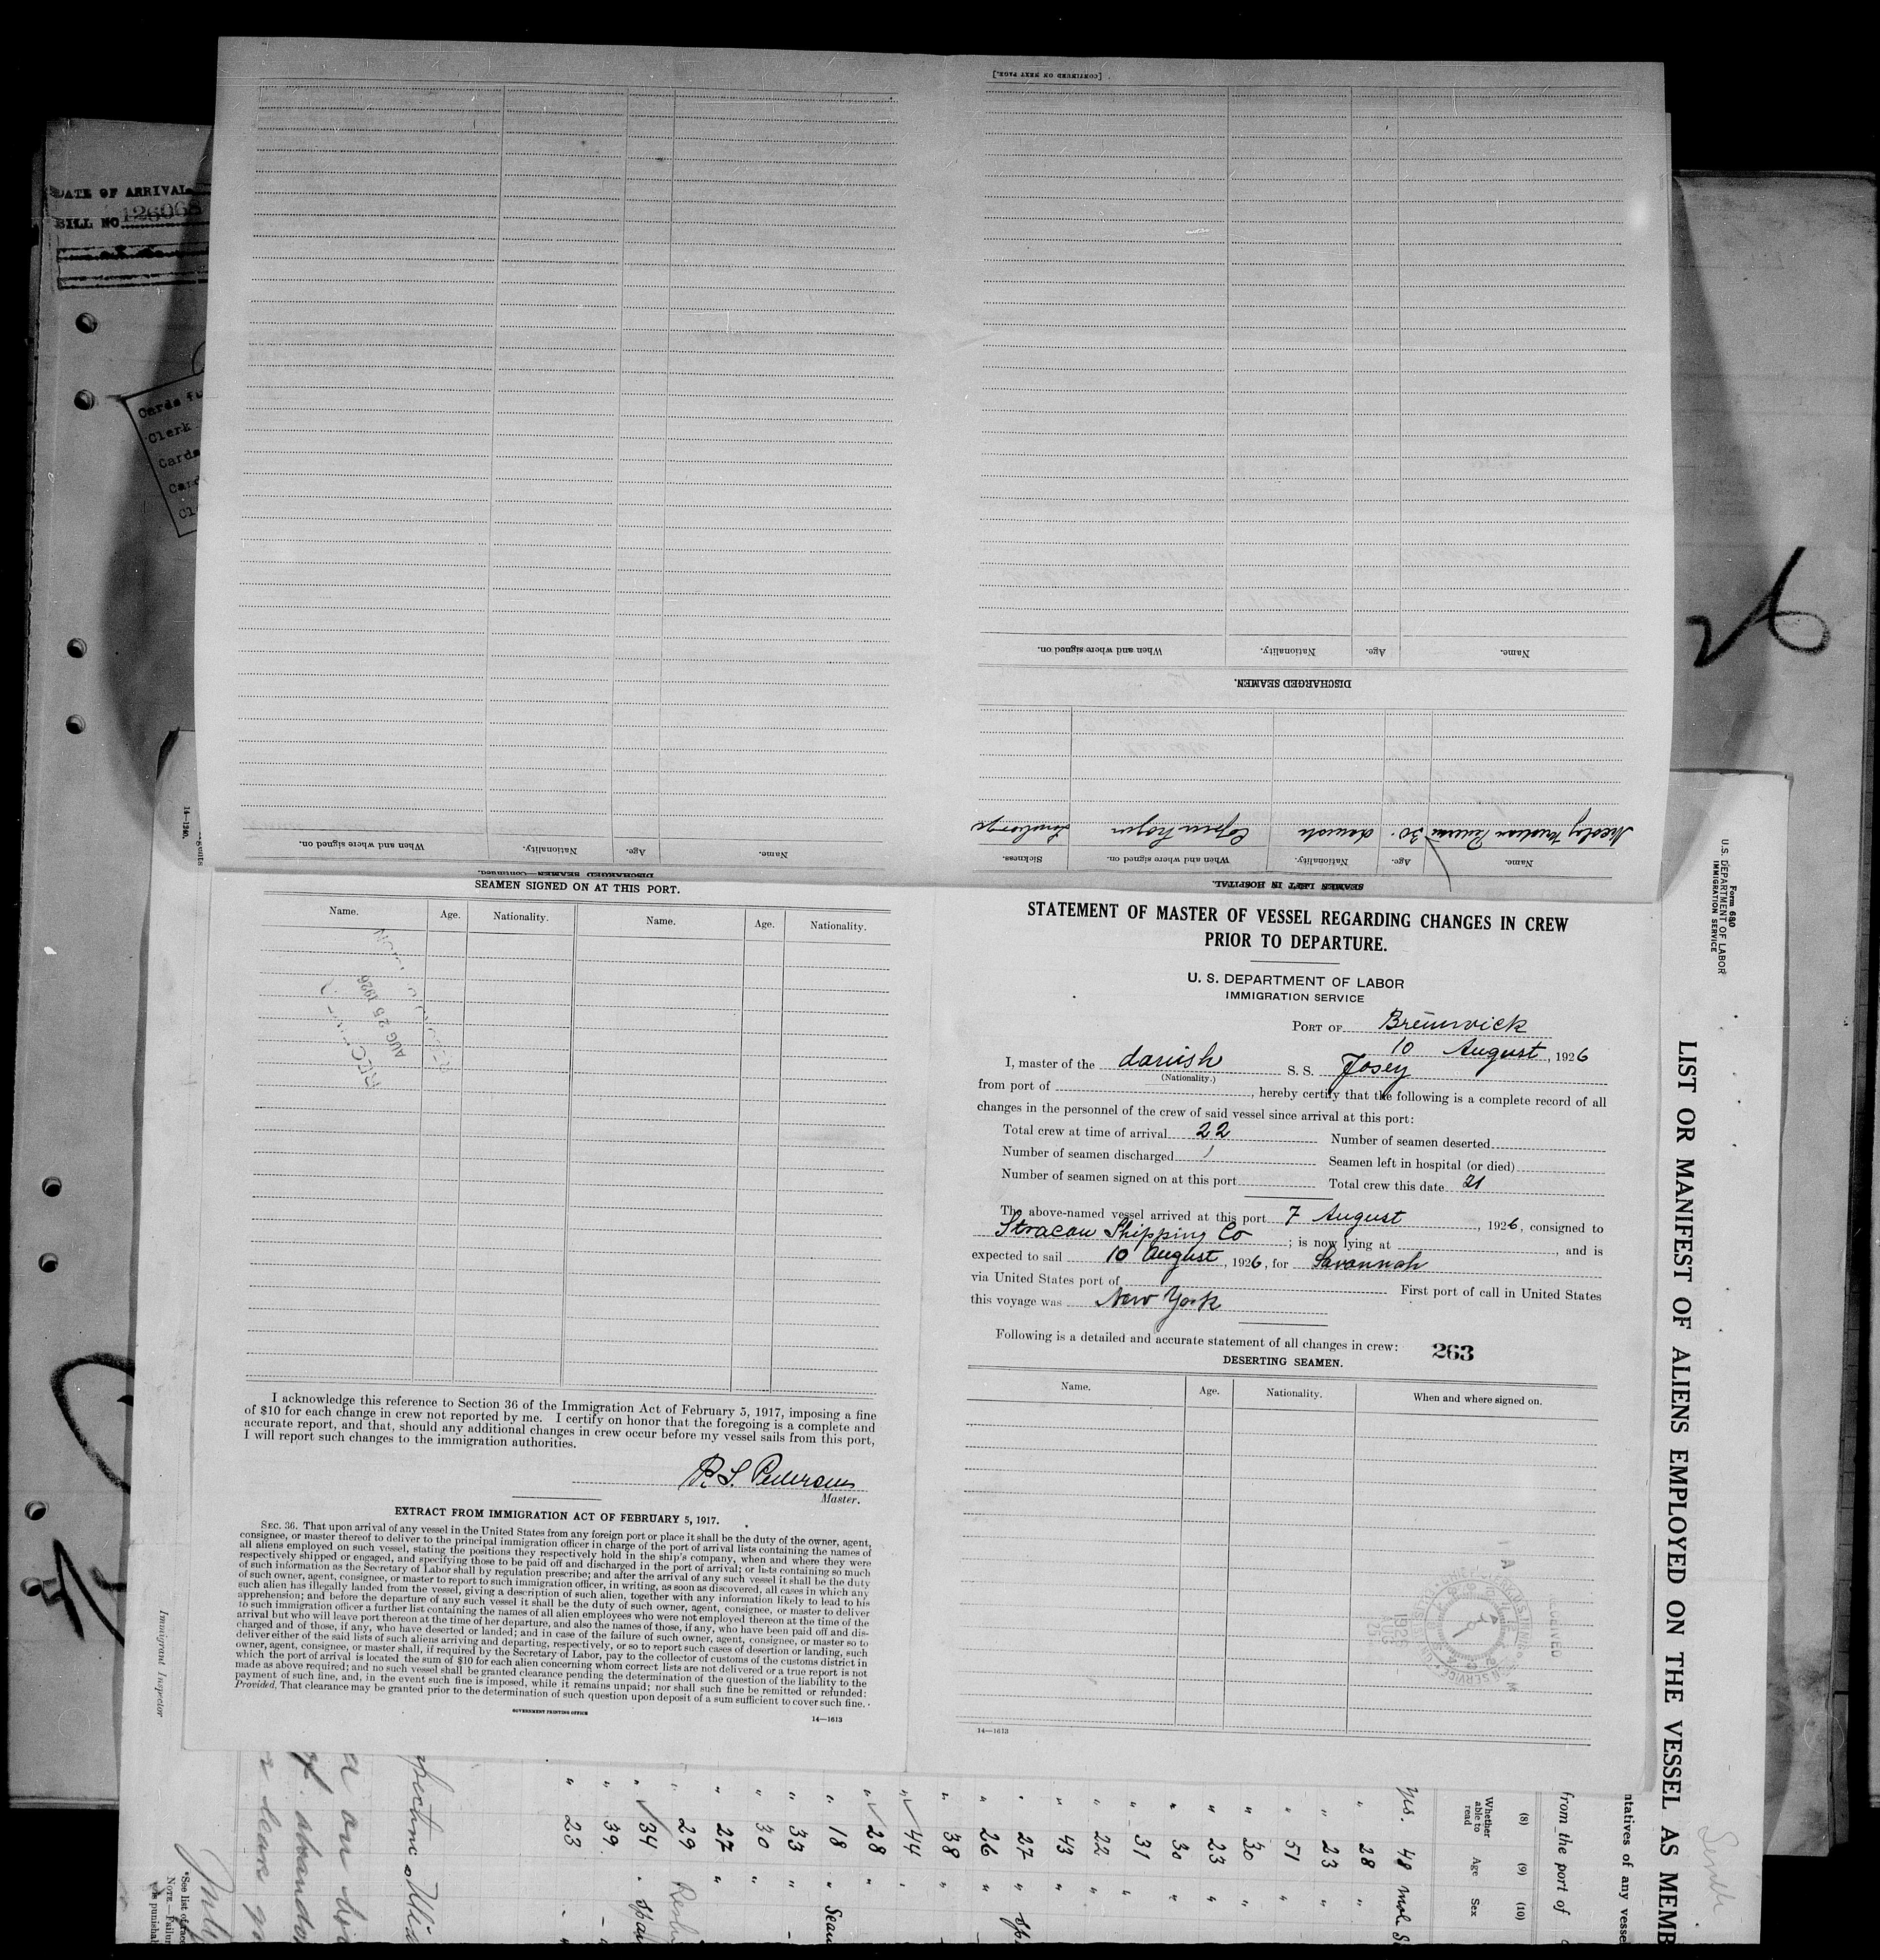 DATE OF ARRIVAL
BILL NO 126068
Cards fu
Clerk
Cards
Card
Cl
[CONTINUED ON NEXT PAGE.]
Name. Age. Nationality. When and where signed on.
DISCHARGED SEAMEN.
30. danish
Name. Age. Nationality. When and where signed on. Sickness.
SEAMEN LEFT IN HOSPITAL.
Name. Age. Nationality. When and where signed on.
DISCHARGED SEAMEN—Continued.
26
SEAMEN SIGNED ON AT THIS PORT.
Name. Age. Nationality. Name. Age. Nationality.
AUG 25 1926
I acknowledge this reference to Section 36 of the Immigration Act of February 5, 1917, imposing a fine
of $10 for each change in crew not reported by me. I certify on honor that the foregoing is a complete and
accurate report, and that, should any additional changes in crew occur before my vessel sails from this port,
I will report such changes to the immigration authorities.
P. S. Pedersen
Master.
EXTRACT FROM IMMIGRATION ACT OF FEBRUARY 5, 1917.
SEC. 36. That upon arrival of any vessel in the United States from any foreign port or place it shall be the duty of the owner, agent,
consignee, or master thereof to deliver to the principal immigration officer in charge of the port of arrival lists containing the names of
all aliens employed on such vessel, stating the positions they respectively hold in the ship's company, when and where they were
respectively shipped or engaged, and specifying those to be paid off and discharged in the port of arrival; or lists containing so much
of such information as the Secretary of Labor shall by regulation prescribe; and after the arrival of any such vessel it shall be the duty
of such owner, agent, consignee, or master to report to such immigration officer, in writing, as soon as discovered, all cases in which any
such alien has illegally landed from the vessel, giving a description of such alien, together with any information likely to lead to his
apprehension; and before the departure of any such vessel it shall be the duty of such owner, agent, consignee, or master to deliver
to such immigration officer a further list containing the names of all alien employees who were not employed thereon at the time of the
arrival but who will leave port thereon at the time of her departure, and also the names of those, if any, who have been paid off and dis-
charged and of those, if any, who have deserted or landed; and in case of the failure of such owner, agent, consignee, or master so to
deliver either of the said lists of such aliens arriving and departing, respectively, or so to report such cases of desertion or landing, such
owner, agent, consignee, or master shall, if required by the Secretary of Labor, pay to the collector of customs of the customs district in
which the port of arrival is located the sum of $10 for each alien concerning whom correct lists are not delivered or a true report is not
made as above required; and no such vessel shall be granted clearance pending the determination of the question of the liability to the
payment of such fine, and, in the event such fine is imposed, while it remains unpaid; nor shall such fine be remitted or refunded:
Provided, That clearance may be granted prior to the determination of such question upon deposit of a sum sufficient to cover such fine.
GOVERNMENT PRINTING OFFICE
14—1613
STATEMENT OF MASTER OF VESSEL REGARDING CHANGES IN CREW
PRIOR TO DEPARTURE.
U. S. DEPARTMENT OF LABOR
IMMIGRATION SERVICE
PORT OF Brunswick
10 August, 1926
I, master of the danish S. S. Josey
(Nationality.)
from port of , hereby certify that the following is a complete record of all
changes in the personnel of the crew of said vessel since arrival at this port:
Total crew at time of arrival 22 Number of seamen deserted
Number of seamen discharged 1 Seamen left in hospital (or died)
Number of seamen signed on at this port Total crew this date 21
The above-named vessel arrived at this port 7 August, 1926, consigned to
Stracan Shipping Co ; is now lying at , and is
expected to sail 10 August, 1926, for Savannah
via United States port of First port of call in United States
this voyage was New York
Following is a detailed and accurate statement of all changes in crew: 263
DESERTING SEAMEN.
Name. Age. Nationality. When and where signed on.
RECEIVED
1926
AUG
25
14—1613
Form 680
U.S. DEPARTMENT OF LABOR
IMMIGRATION SERVICE
LIST OR MANIFEST OF ALIENS EMPLOYED ON THE VESSEL AS MEMB
ntatives of any vesse
from the port of
(8) (9) (10)
Whether able to read Age Sex
yes. 48 male
" 28 "
" 23 "
" 51 "
" 30 "
" 23 "
" 30 "
" 31 "
" 22 "
" 43 "
" 27 "
" 26 "
" 38 "
" 44
" 28 "
" 18 "
" 33 "
" 30 "
" 27 "
" 29
" 34
" 39
" 23
Immigrant Inspector
14—1240
*See list of
NOTE.—Failur
is punishab